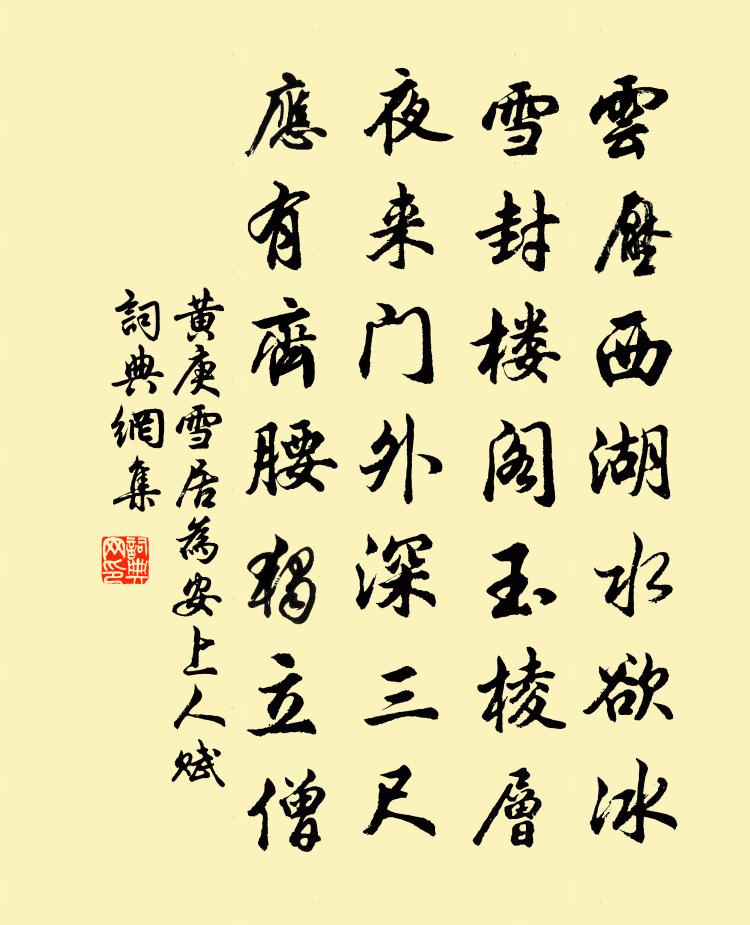 雲壓西湖水欲冰
雪封楼阁玉棱層
夜来门外深三尺
應有齊腰獨立僧
黄庚雪居為安上人赋
詞典網集
詞典网印